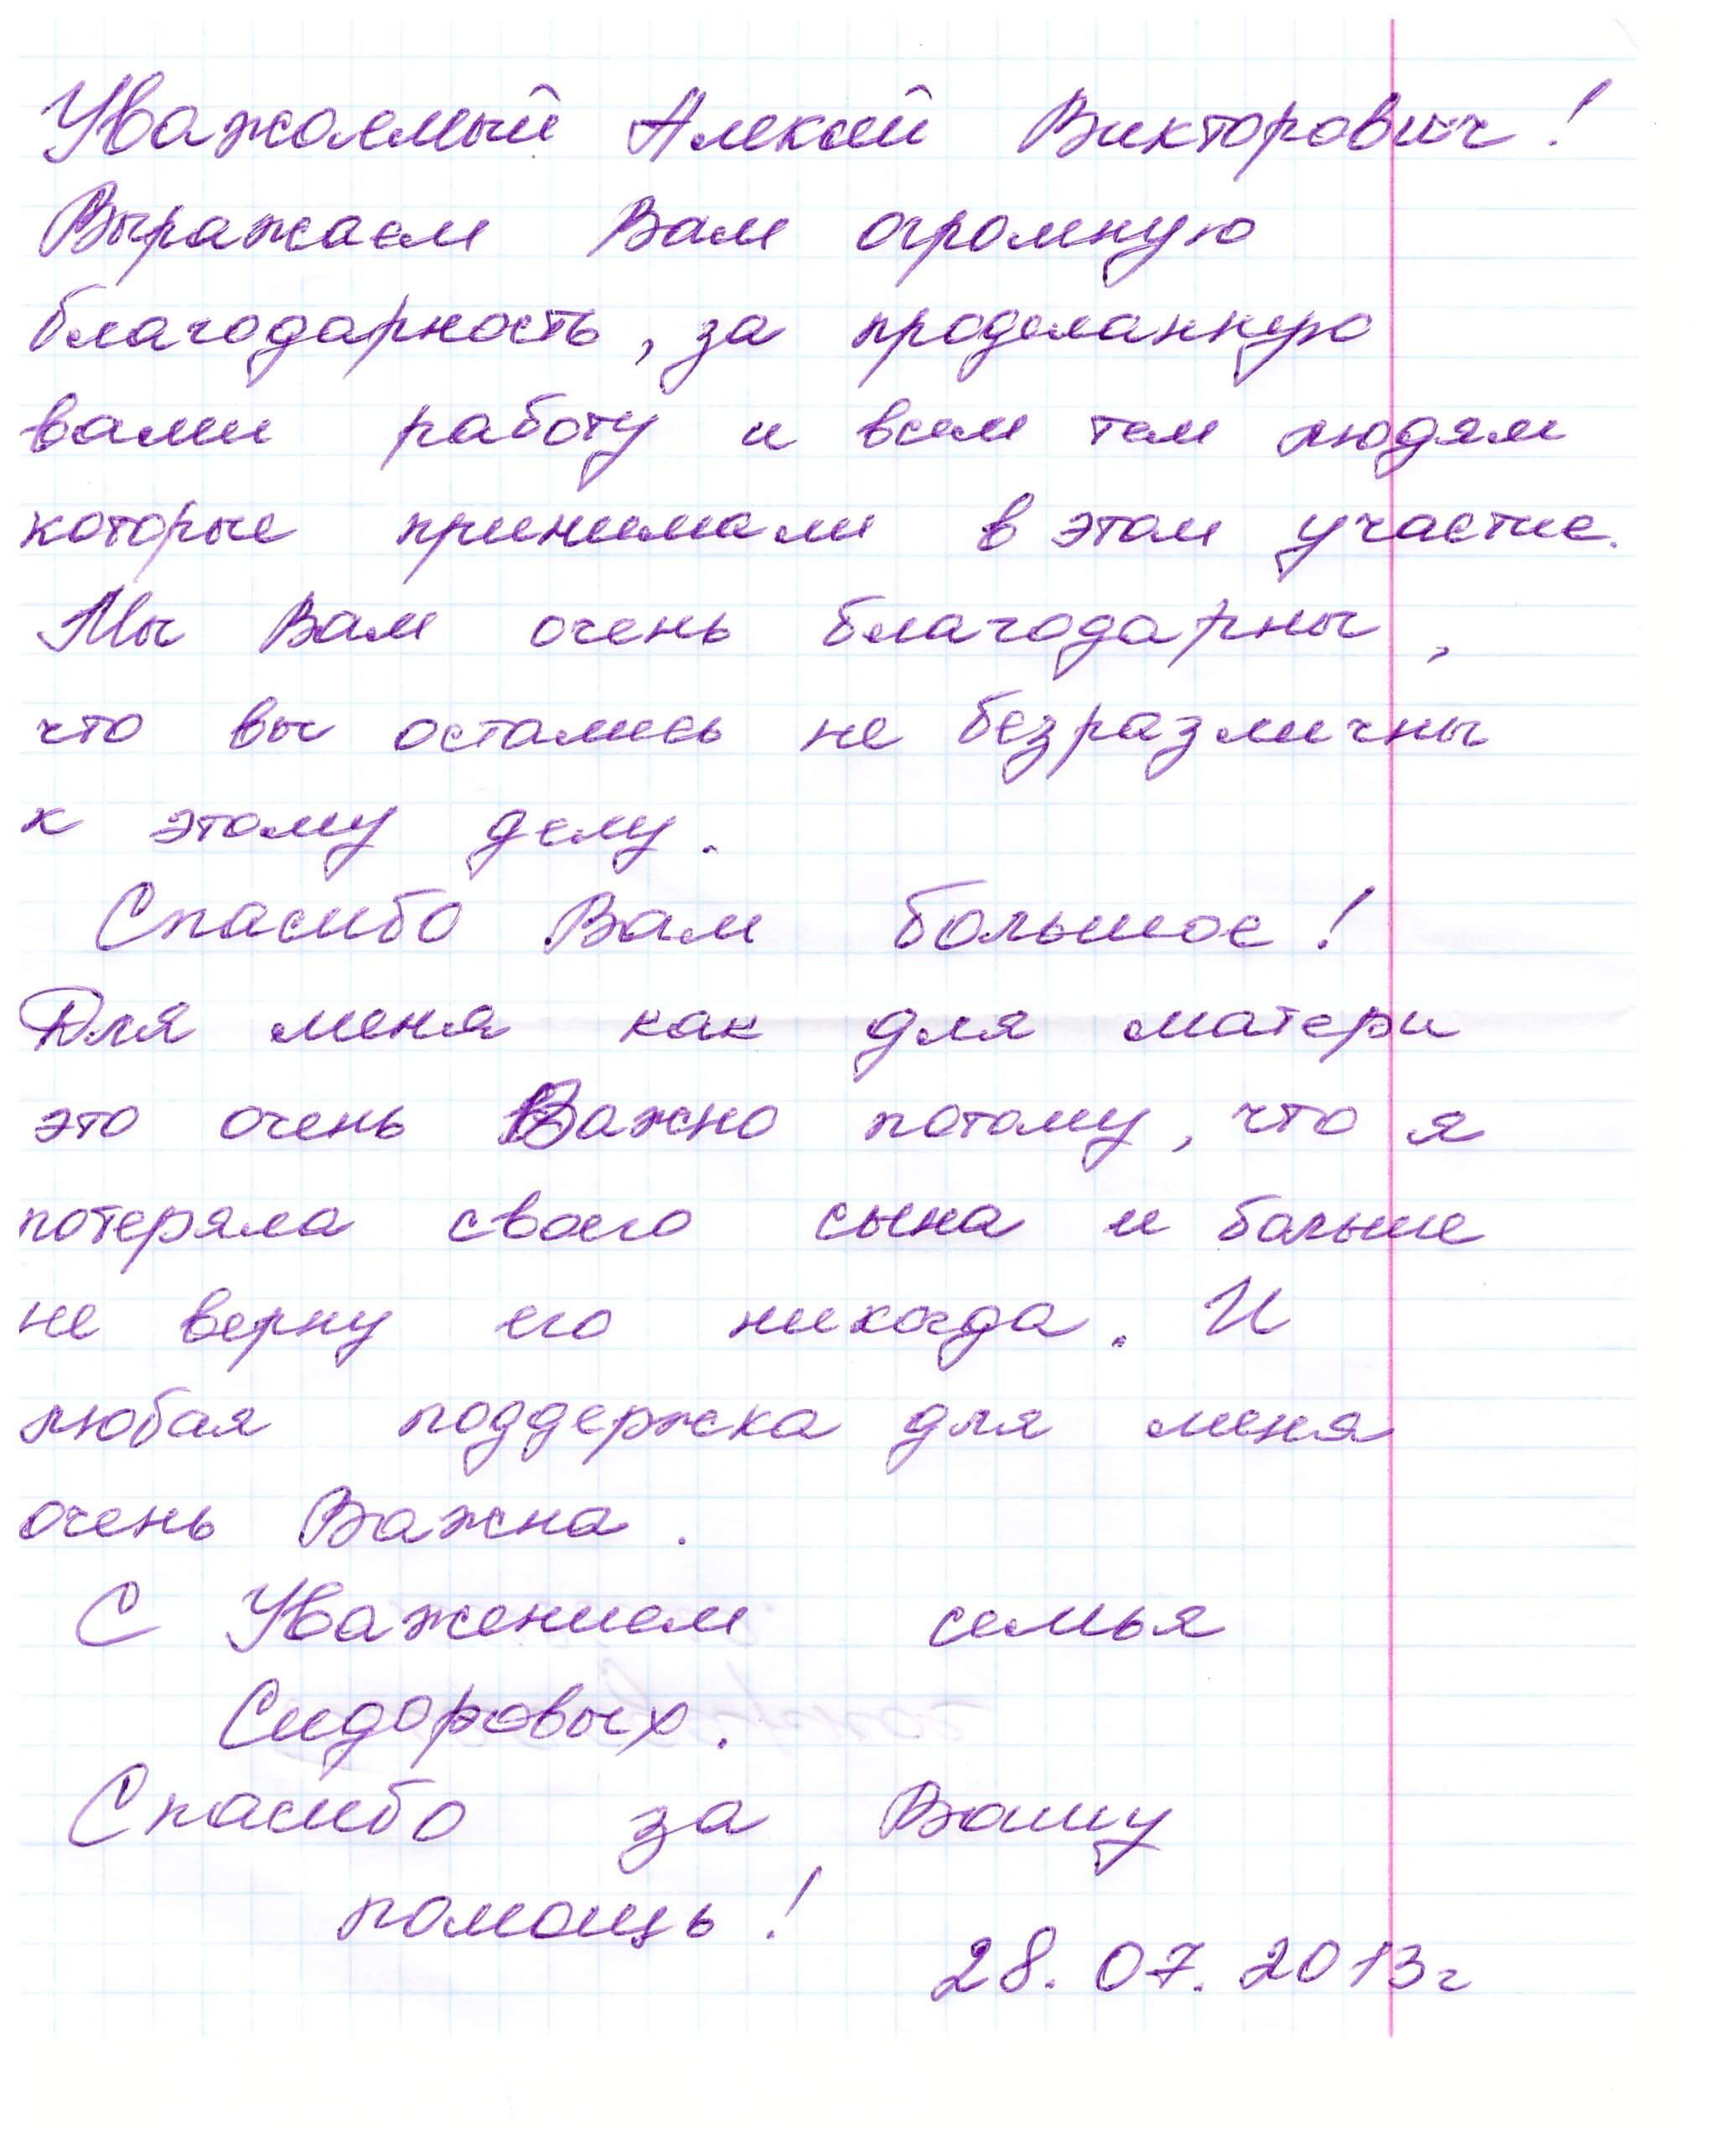 Уважаемый Алексей Викторович!
Выражаем Вам огромную
благодарность, за проделанную
вами работу и всем тем людям
которые принимали в этом участие.
Мы Вам очень благодарны,
что вы остались не безразличны
к этому делу.
Спасибо Вам большое!
Для меня как для матери
это очень Важно потому, что я
потеряла своего сына и больше
не верну его никогда. И
любая поддержка для меня
очень Важна.
С Уважением семья
Сидоровых.
Спасибо за Вашу
помощь!
28.07.2013г